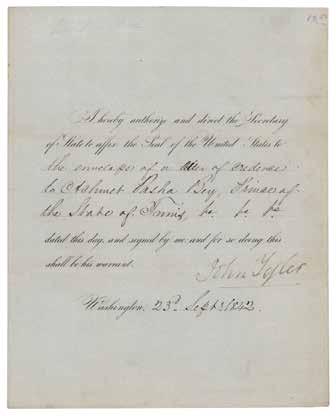 I hereby authorize and direct the Secretary
of State to affix the Seal of the United States to
the envelope of a letter of credence
to Ashmet Pasha Bey, Prince of
the State of Tunis &c. &c. &c.
dated this day, and signed by me: and for so doing this
shall be his warrant.
John Tyler
Washington, 23d. Sept. 1842.